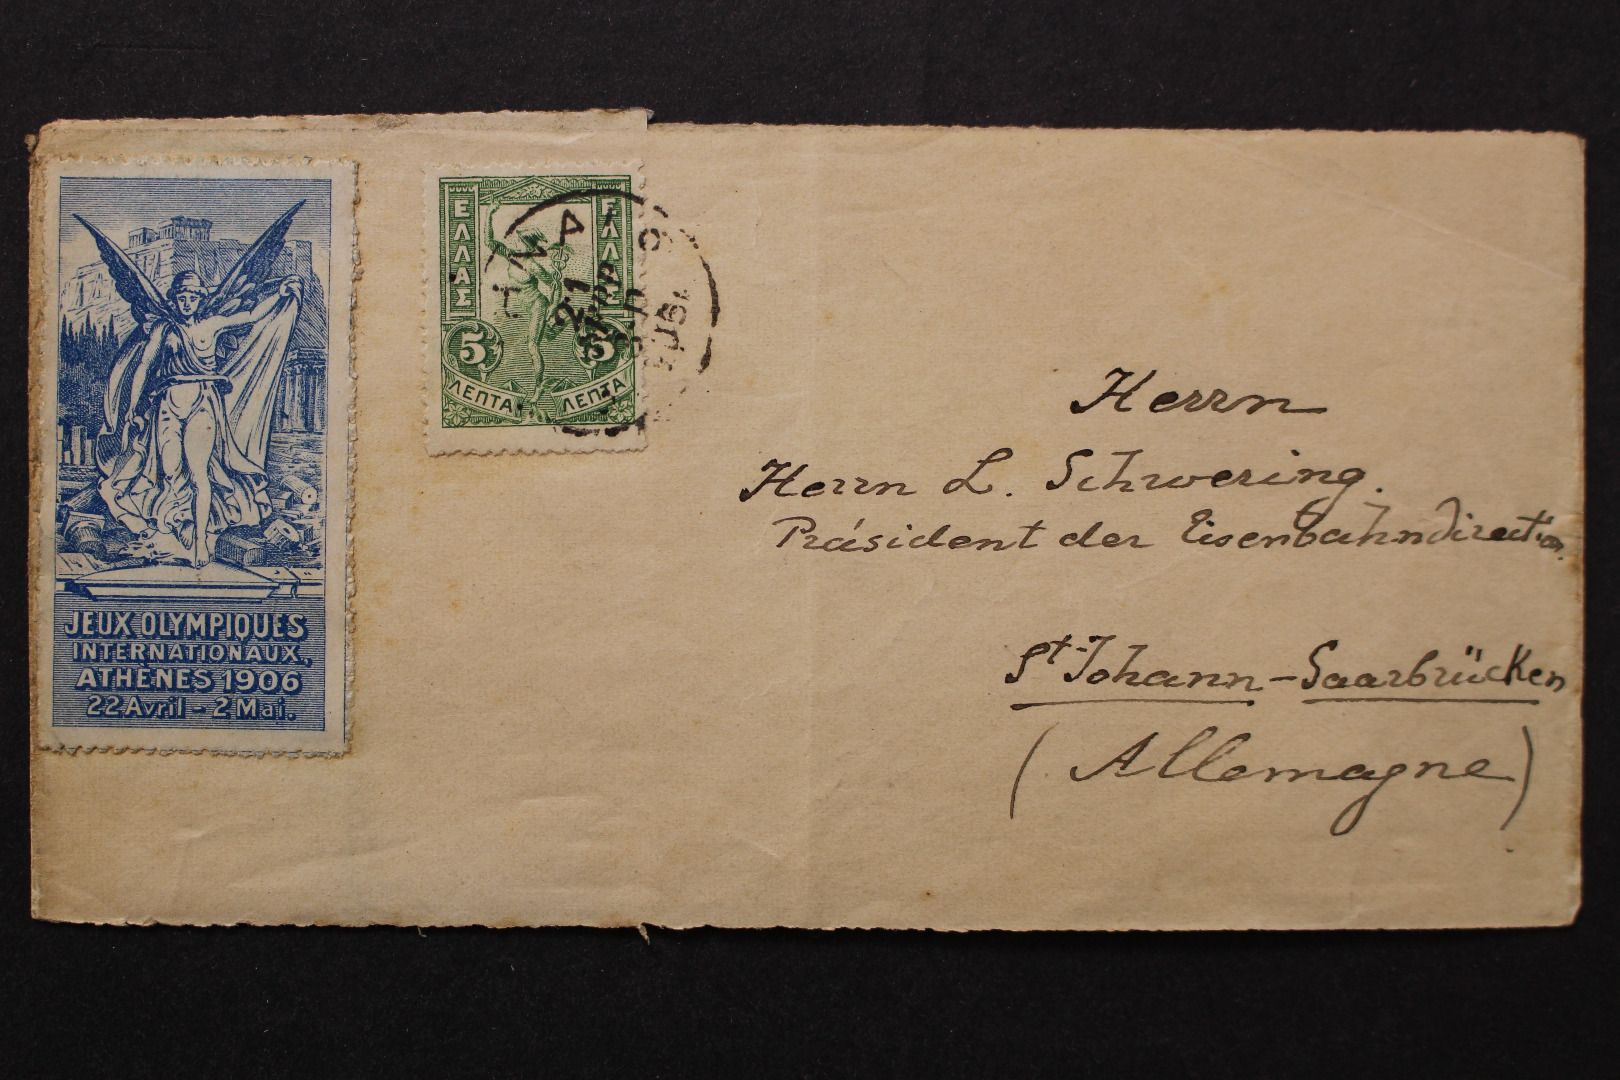 JEUX OLYMPIQUES
INTERNATIONAUX,
ATHÈNES 1906
22 Avril - 2 Mai.
ΕΛΛΑΣ
ΕΛΛΑΣ
5
5
ΛΕΠΤΑ
ΛΕΠΤΑ
21
Herrn
Herrn L. Schwering.
Präsident der Eisenbahndirection
St Johann - Saarbrücken
(Allemagne)